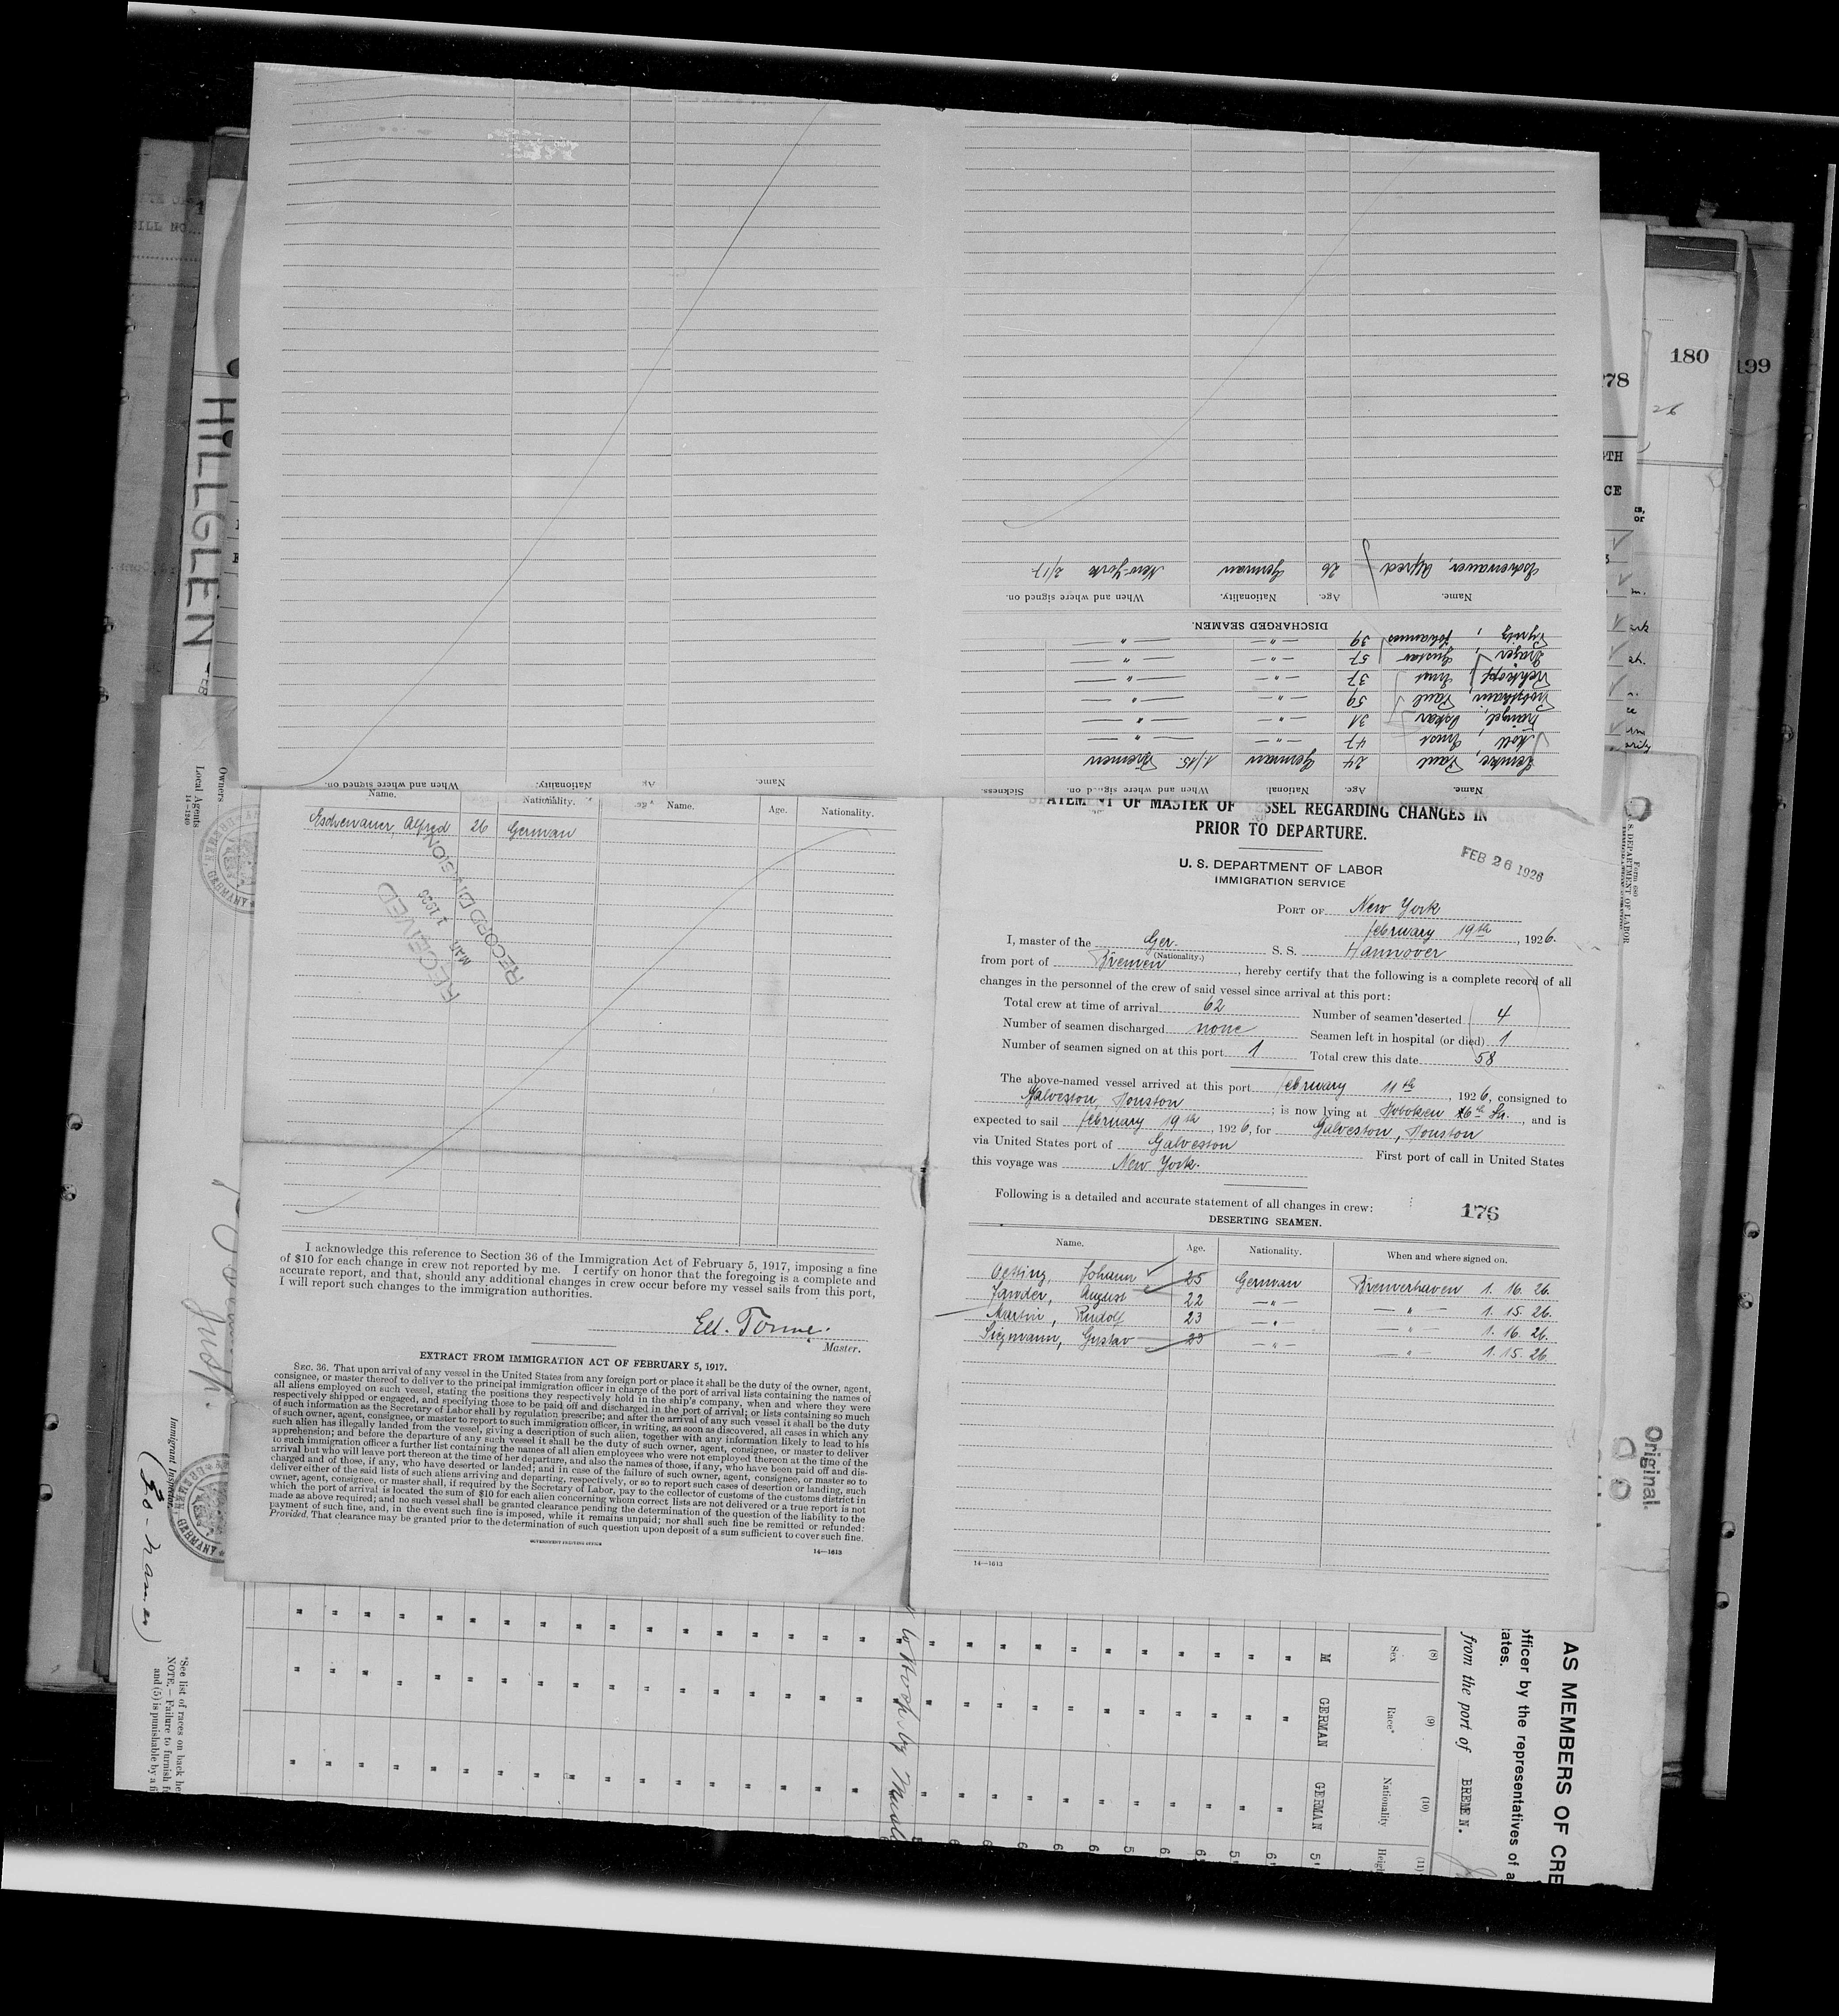 STATEMENT OF MASTER OF VESSEL REGARDING CHANGES IN
PRIOR TO DEPARTURE.
U. S. DEPARTMENT OF LABOR
IMMIGRATION SERVICE
FEB 26 1926
PORT OF New York
february 19th, 1926.
I, master of the Ger. S. S. Hannover
(Nationality.)
from port of Bremen, hereby certify that the following is a complete record of all
changes in the personnel of the crew of said vessel since arrival at this port:
Total crew at time of arrival 62 Number of seamen deserted 4
Number of seamen discharged none Seamen left in hospital (or died) 1
Number of seamen signed on at this port 1 Total crew this date 58
The above-named vessel arrived at this port february 11th, 1926, consigned to
Galveston, Houston; is now lying at Hoboken 6th St., and is
expected to sail february 19th, 1926, for Galveston, Houston
via United States port of Galveston First port of call in United States
this voyage was New York.
Following is a detailed and accurate statement of all changes in crew:
176
DESERTING SEAMEN.
Name. Age. Nationality. When and where signed on.
Oetting, Johann 25 German Bremerhaven 1. 16. 26.
August 22 — " — — " — 1. 15. 26.
Martin, Rudolf 23 — " — — " — 1. 16. 26.
Siegmann, Gustav 23 — " — — " — 1. 15. 26.
14—1613
Name. Nationality. Age. Name. Age. Nationality.
Eschenauer, Alfred 26 German
RECEIVED
MAR 1 1926
RECORD DIVISION
I acknowledge this reference to Section 36 of the Immigration Act of February 5, 1917, imposing a fine
of $10 for each change in crew not reported by me. I certify on honor that the foregoing is a complete and
accurate report, and that, should any additional changes in crew occur before my vessel sails from this port,
I will report such changes to the immigration authorities.
Master.
EXTRACT FROM IMMIGRATION ACT OF FEBRUARY 5, 1917.
SEC. 36. That upon arrival of any vessel in the United States from any foreign port or place it shall be the duty of the owner, agent,
consignee, or master thereof to deliver to the principal immigration officer in charge of the port of arrival lists containing the names of
all aliens employed on such vessel, stating the positions they respectively hold in the ship's company, when and where they were
respectively shipped or engaged, and specifying those to be paid off and discharged in the port of arrival; or lists containing so much
of such information as the Secretary of Labor shall by regulation prescribe; and after the arrival of any such vessel it shall be the duty
of such owner, agent, consignee, or master to report to such immigration officer, in writing, as soon as discovered, all cases in which any
such alien has illegally landed from the vessel, giving a description of such alien, together with any information likely to lead to his
apprehension; and before the departure of any such vessel it shall be the duty of such owner, agent, consignee, or master to deliver
to such immigration officer a further list containing the names of all alien employees who were not employed thereon at the time of the
arrival but who will leave port thereon at the time of her departure, and also the names of those, if any, who have been paid off and dis-
charged and of those, if any, who have deserted or landed; and in case of the failure of such owner, agent, consignee, or master so to
deliver either of the said lists of such aliens arriving and departing, respectively, or so to report such cases of desertion or landing, such
owner, agent, consignee, or master shall, if required by the Secretary of Labor, pay to the collector of customs of the customs district in
which the port of arrival is located the sum of $10 for each alien concerning whom correct lists are not delivered or a true report is not
made as above required; and no such vessel shall be granted clearance pending the determination of the question of the liability to the
payment of such fine, and, in the event such fine is imposed, while it remains unpaid; nor shall such fine be remitted or refunded:
Provided, That clearance may be granted prior to the determination of such question upon deposit of a sum sufficient to cover such fine.
GOVERNMENT PRINTING OFFICE
14—1613
Name. Age. National When and where signed on. Sickness.
Paul 24 German 1/15. Bremen
Noll, Ernst 47 — " — — " —
Oskar 31 — " — — " —
Paul 59 — " — — " —
Rehkopf, Ernst 37 — " — — " —
Gustav 57 — " — — " —
Johannes 39 — " — — " —
DISCHARGED SEAMEN.
Name. Age. Nationality. When and where signed on.
Eschenauer, Alfred 26 German New-York 2/17
Name. Ag Nationality. When and where signed on.
HILLGLEN
180
199
78
Original.
Owners
Local Agents
14-1240
Immigrant Inspector.
AS MEMBERS OF CRE
officer by the representatives of a
tates.
from the port of BREMEN.
(8) (9) (10) (11)
Sex Race* Nationality Heigh
M GERMAN GERMAN 5'
*See list of races on back he
NOTE.—Failure to furnish f
and (5) is punishable by a fi